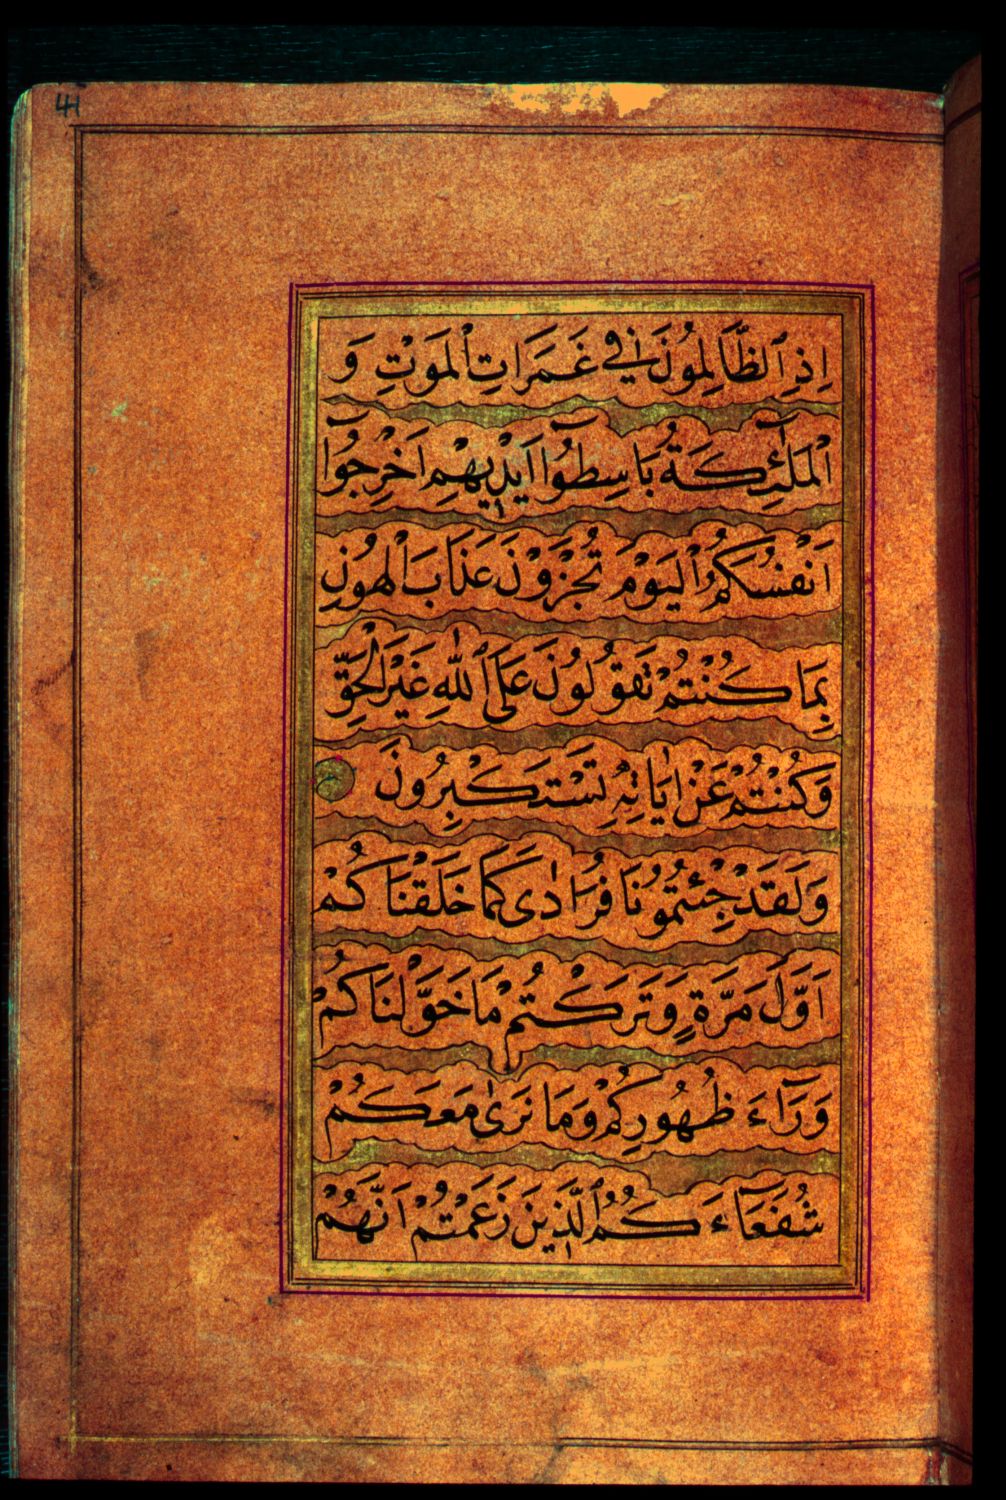 اِذِ ٱلظَّالِمُونَ فِي غَمَرَاتِ ٱلْمَوْتِ وَ
ٱلْمَلٰٓئِكَةُ بَاسِطُوٓا اَيْدِيهِمْ اَخْرِجُوٓا
اَنْفُسَكُمُ ٱلْيَوْمَ تُجْزَوْنَ عَذَابَ ٱلْهُونِ
بِمَا كُنْتُمْ تَقُولُونَ عَلَى ٱللّٰهِ غَيْرَ ٱلْحَقِّ
وَكُنْتُمْ عَنْ اٰيَاتِهٖ تَسْتَكْبِرُونَ
وَلَقَدْ جِئْتُمُونَا فُرَادٰى كَمَا خَلَقْنَاكُمْ
اَوَّلَ مَرَّةٍ وَتَرَكْتُمْ مَا خَوَّلْنَاكُمْ
وَرَآءَ ظُهُورِكُمْ وَمَا نَرٰى مَعَكُمْ
شُفَعَآءَكُمُ ٱلَّذِينَ زَعَمْتُمْ اَنَّهُمْ